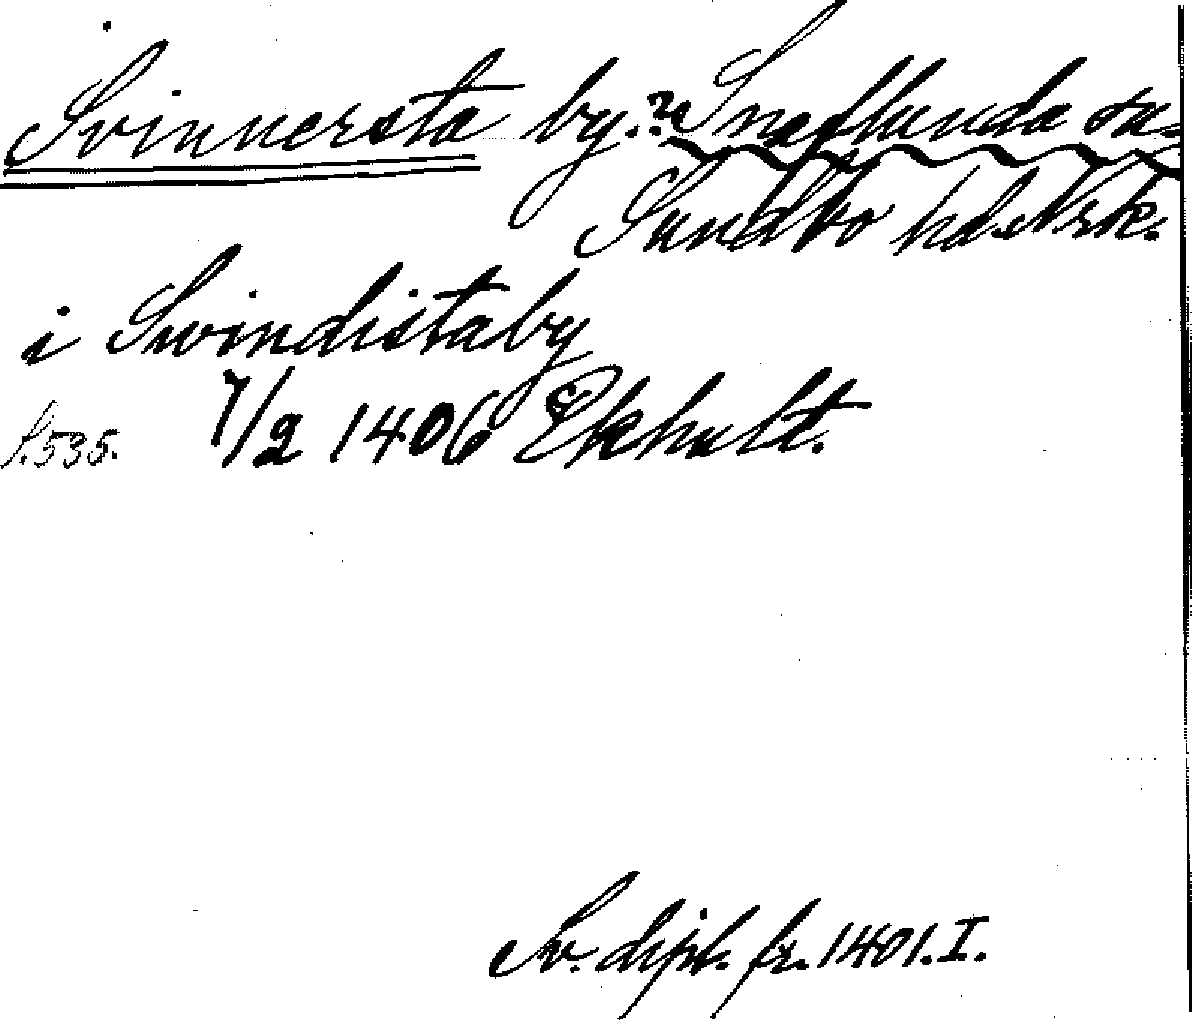 Svinnersta by.? Snaflunda sn.
Sundbo hd. Nrk.
i Swindistaby
S. 535. 7/2 1406 Ekhult.
Sv. dipl. fr. 1401. I.